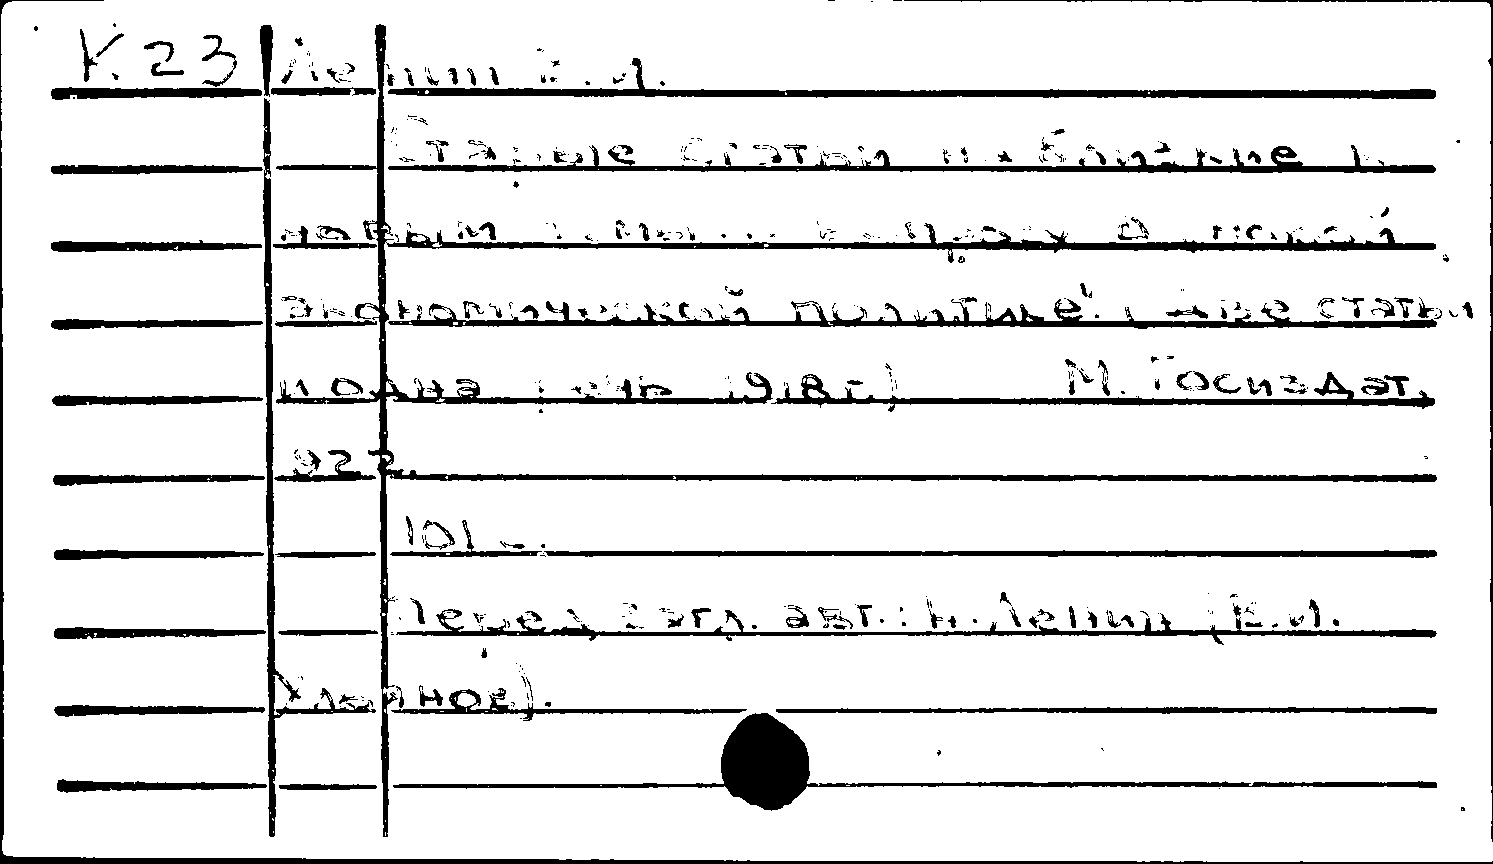 К.23 Ленин В.И.
Старые статьи на близкие к
новым темы. К вопросу о новой
экономической политике. (Две статьи
и одна речь 1918 г.) М. Госиздат.
922.
101 с.
Перед загл. авт.: Н. Ленин (В.И.
Ульянов).